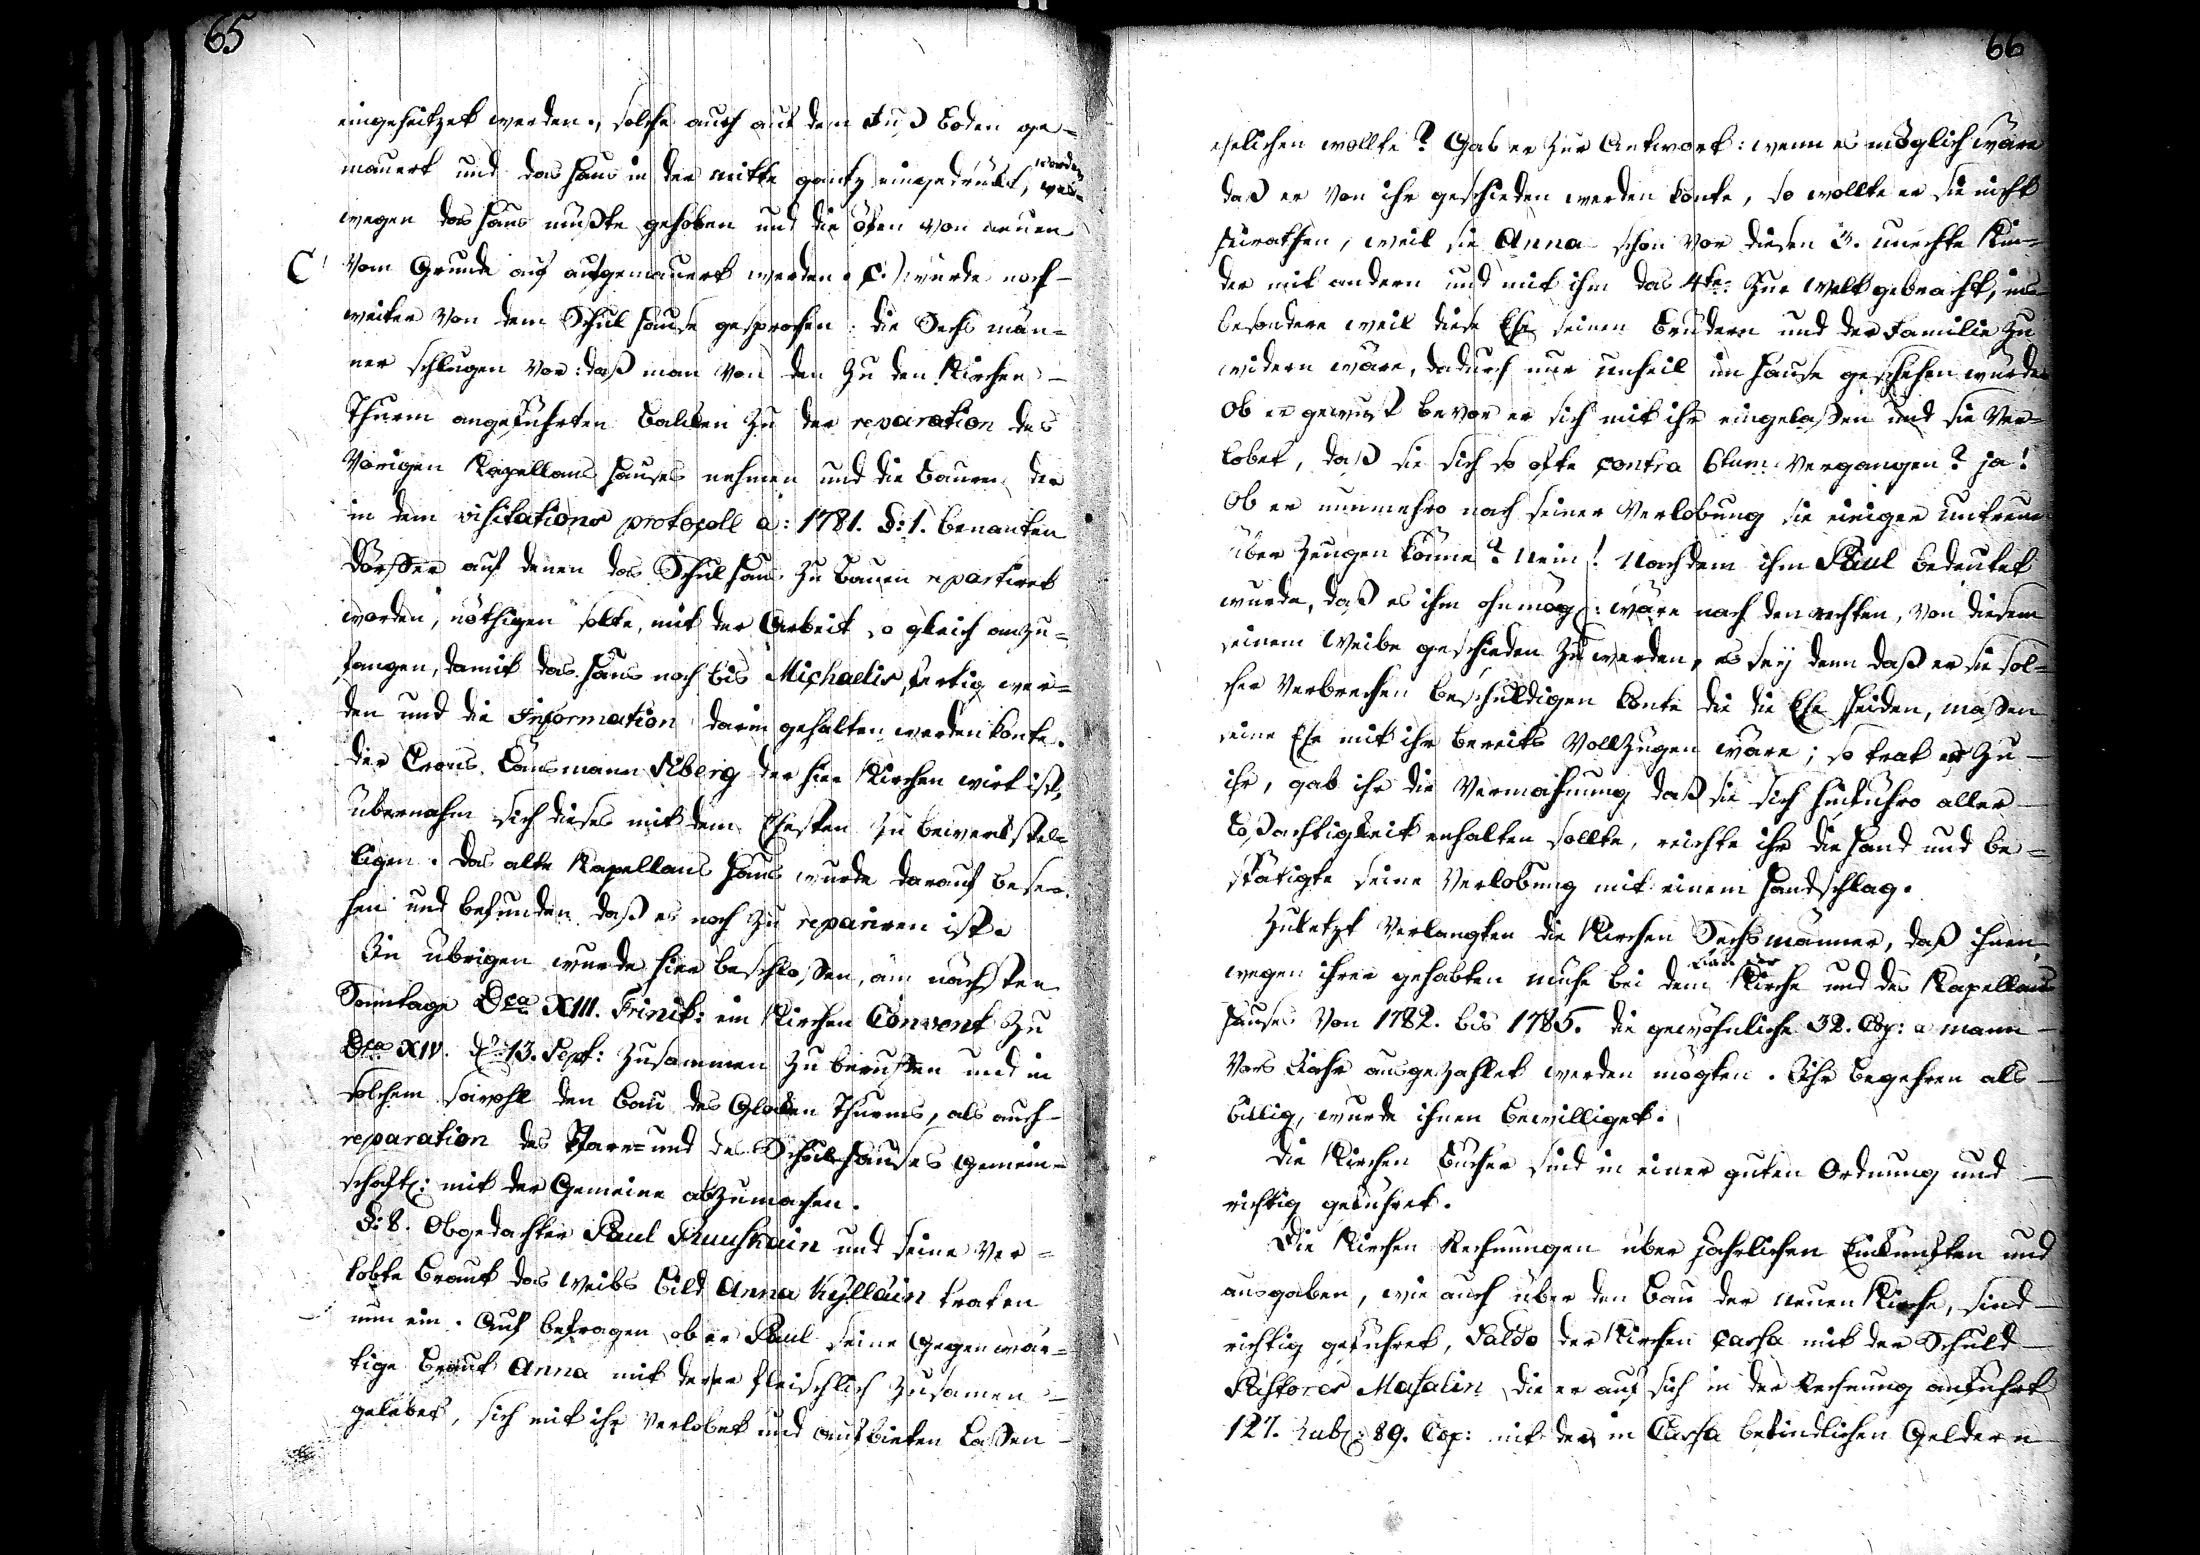 65
eingeheitzet werden, solche auch auf dem Fuß Boden ge-
mauert und das Haus in der mitte gantz eingedrückt, worden, wes-
wegen das Haus müßte gehoben und die öfen von neuen
C Vom Grunde auf aufgemauert werden. C.) wurde noch-
weiter von dem Schul Hause gesprochen: die Sechs män-
ner schlugen vor: daß man von den zu den Kirchen-
Thurm angeführten Balken zu der reparation des
Vorigen Kapellans Hauses nehmen und die Bauren der
in dem visitations protocoll a: 1781. §: 1. benanten
Dörffer auf denen das Schul Haus zu bauen repartiret
worden, nöthigen solte, mit der Arbeit so gleich anzu-
fangen, damit das Haus noch bis Michaelis fertig wer-
den und die Information darin gehalten werden konte.
Der Crons Länsmann Siberg der hier Kirchen wirt ist,
übernahm sich dieses mit dem Ehesten zu bewerkstel-
ligen. Das alte Kapellans Haus wurde darauf bese-
hen und befunden daß es noch zu repariren ist.
Im übrigen wurde hier beschloßen, am nächsten
Sonntage Dca XIII. Trinit: ein Kirchen Convent zu
Dca XIV. d: 13. Sept: zusammen zu beruffen und in
solchem sowohl den Bau des Glocken Thurms, als auch-
reparation des Pfarr- und des Schul Hauses Gemein-
schaftl: mit der Gemeine abzumachen.
§: 8. Obgedachter Paul Kuuskain und seine Ver-
lobte Braut das Weibs Bild Anna Kylläin traten
nun ein. Auf befragen ob er Paul seine Gegenwär-
tige Braut Anna mit derer fleischlich zusamen-
gelebet, sich mit ihr verlobet und aufbieten laßen-
66
ehelichen wollte? Gab er zur Antwort: wenn es möglich wäre
daß er von ihr geschieden werden konte, so wollte er sie nicht
heirathen, weil sie Anna schon vor diesen 3. unechte Kin-
der mit andern und mit ihm das 4te: zur Welt gebracht, ins-
besondere weil diese Ehe seinen Brüdern und der Familie zu
widern wäre, dadurch nur unheil im Hause geschehen würde
Ob er gewust bevor er sich mit ihr eingelaßen und sie Ver-
lobet, daß sie sich so ofte contra 6tum vergangen? ja!
Ob er nunmehro nach seiner Verlobung sie einiger untreue
über zeugen könne? Nein! Nachdem ihm Paul bedeutet
wurde, daß es ihm ohnmögl: wäre nach den rechten, von diesem
seinem Weibe geschieden zu werden, es sey denn daß er sie sol-
cher Verbrechen beschuldigen konte die die Ehe scheiden, maßen
seine Ehe mit ihr bereits Vollzogen wäre; so trat er zu-
ihr, gab ihr die Vermahnung daß sie sich hinführo aller-
Boßhaftigkeit enhalten sollte, reichte ihr die Hand und be-
stätigte seine Verlobung mit einem Handschlag.
Zuletzt verlangten die Kirchen Sechsmänner, daß ihnen
wegen ihrer gehabten mühe bei dem Bau der Kirche und des Kapellans
Hauses Von 1782. bis 1785. die gewöhnliche 32. Cop: a mann-
Vors Jahr ausgezahlet werden mögten. Ihr begehren als-
billig, wurde ihnen bewilliget.
Die Kirchen Bücher sind in einer guten Ordnung und-
richtig geführet.
Die Kirchen Rechnungen über jährlichen Einkünften und
ausgaben, wie auch über den Bau der neuen Kirche, sind-
richtig geführet, Saldo der Kirchen Cassa mit der Schuld-
Pastores Masalin die er auf sich in der Rechnung anführt
127. Rubl: 89. Cop: mit den in Cassa befindlichen Geldern